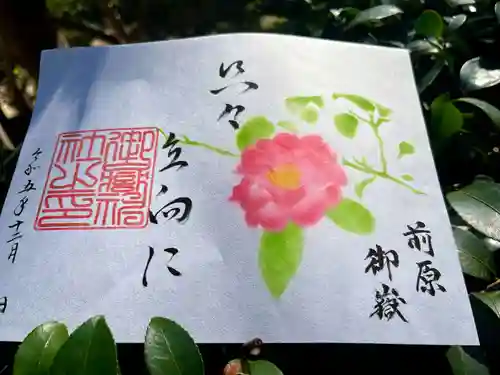 前原
御嶽
只々
立向に
御嶽神
社之印
令和五年十二月 日